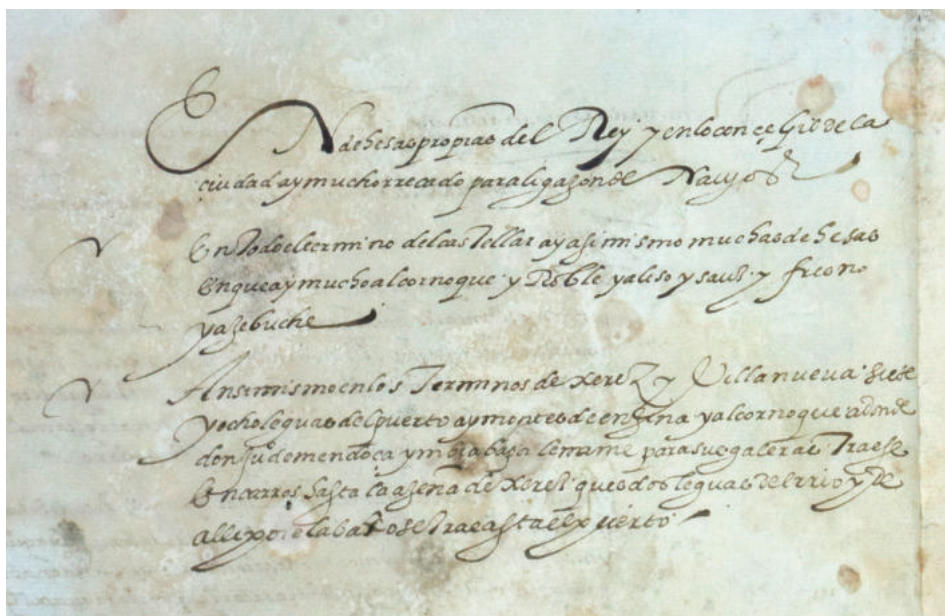 En dehesas propias del Rey y en lo conçegil de la
ciudad ay mucho rrecado para ligazon de Navyos
En todo el termino de castellar ay asi mismo muchas dehesas
en que ay mucho alcornoque y Roble y aliso y sauz y freono
y azebuche
Ansimismo en los Terminos de xerez y Villanueva siete
y ocho leguas del puerto ay montes de enzina y alcornoque adonde
don de mendoça y mosa baja le para sus galeras Traese
en carros hasta la azena de xerez que es dos leguas del rrio y de
alli por el rrio se trae asta el puerto